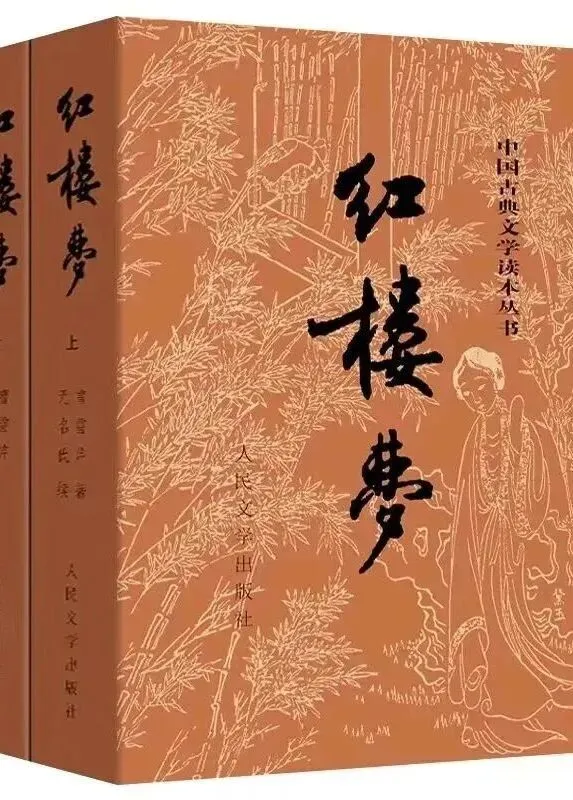 红楼梦
中国古典文学读本丛书
人民文学出版社
黛玉
红楼梦
上
曹雪芹 著
无名氏 续
人民文学出版社
楼梦